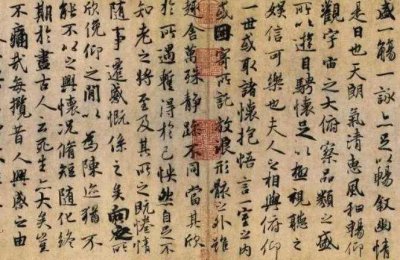 盛一觴一詠亦足以暢叙幽情
是日也天朗氣清惠風和暢仰
觀宇宙之大俯察品類之盛
所以遊目騁懷足以極視聽之
娛信可樂也夫人之相與俯仰
一世或取諸懷抱悟言一室之內
或因寄所託放浪形骸之外雖
趣舍萬殊靜躁不同當其欣
於所遇暫得於己怏然自足不
知老之將至及其所之既惓情
隨事遷感慨係之矣向之所
欣俛仰之閒以為陳迹猶不
能不以之興懷況脩短隨化終
期於盡古人云死生亦大矣豈
不痛哉每攬昔人興感之由